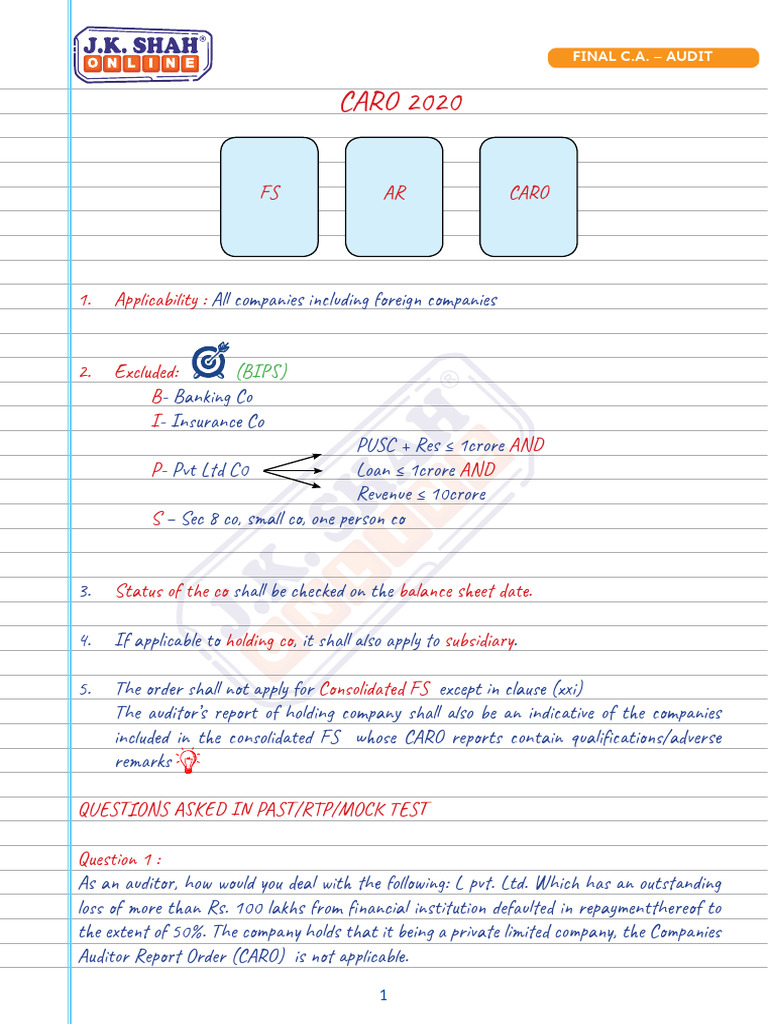 J.K. SHAH®
ONLINE
FINAL C.A. – AUDIT
CARO 2020
FS AR CARO
1. Applicability : All companies including foreign companies
2. Excluded: (BIPS)
B- Banking Co
I- Insurance Co
PUSC + Res ≤ 1crore AND
P- Pvt Ltd Co Loan ≤ 1crore AND
Revenue ≤ 10crore
S – Sec 8 co, small co, one person co
3. Status of the co shall be checked on the balance sheet date.
4. If applicable to holding co, it shall also apply to subsidiary.
5. The order shall not apply for Consolidated FS except in clause (xxi)
The auditor's report of holding company shall also be an indicative of the companies
included in the consolidated FS whose CARO reports contain qualifications/adverse
remarks
QUESTIONS ASKED IN PAST/RTP/MOCK TEST
Question 1 :
As an auditor, how would you deal with the following: L pvt. Ltd. Which has an outstanding
loss of more than Rs. 100 lakhs from financial institution defaulted in repaymentthereof to
the extent of 50%. The company holds that it being a private limited company, the Companies
Auditor Report Order (CARO) is not applicable.
J.K. SHAH®
ONLINE
1